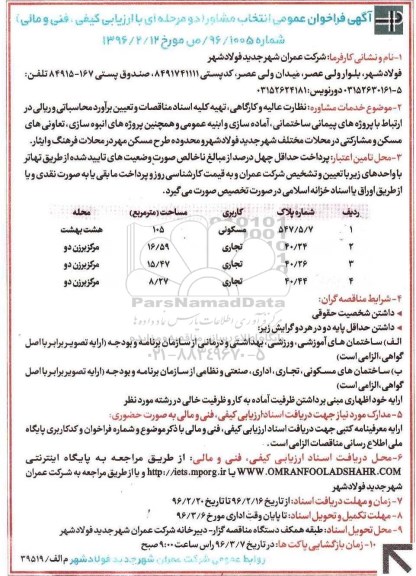 آگهی فراخوان عمومی انتخاب مشاور( دو مرحله ای با ارزیابی کیفی ، فنی و مالی )
شماره ۹۶/۱۰۰۵/ص مورخ ۱۳۹۶/۲/۱۲
۱-نام و نشانی کارفرما: شرکت عمران شهر جدید فولادشهر
فولادشهر، بلوار ولی عصر، میدان ولی عصر، کدپستی ۸۴۹۱۷۴۱۱۱۱، صندوق پستی ۱۶۷-۸۴۹۱۵ تلفن:
۵-۰۳۱۵۲۶۳۰۱۶۱ دورنویس: ۰۳۱۵۲۶۲۴۱۸۱
۲-موضوع خدمات مشاوره: نظارت عالیه و کارگاهی ، تهیه کلیه اسناد مناقصات و تعیین برآورد محاسباتی و ریالی در
ارتباط با پروژه های پیمانی ساختمانی، آماده سازی و ابنیه عمومی و همچنین پروژه های انبوه سازی، تعاونی های
مسکن و مشارکتی در محلات مختلف شهر جدید فولادشهر و محدوده طرح مسکن مهر در محلات فرهنگ و ایثار.
۳-محل تامین اعتبار: پرداخت حداقل چهل درصد از مبالغ ناخالص صورت وضعیت های تایید شده از طریق تهاتر
با واحدهای زیر با تعیین و تشخیص شرکت عمران و به قیمت کارشناسی روز و پرداخت مابقی یا به صورت نقدی و یا
از طریق اوراق یا اسناد خزانه اسلامی در صورت تخصیص صورت می گیرد.
ردیف شماره پلاک کاربری مساحت (مترمربع) محله
۱ ۵۴۷/۵/۷ مسکونی ۱۰۵ هشت بهشت
۲ ۴۰/۲۴ تجاری ۱۶/۵۹ مرکز برزن دو
۳ ۴۰/۲۶ تجاری ۱۵/۴۷ مرکز برزن دو
۴ ۴۰/۴۴ تجاری ۸/۲۷ مرکز برزن دو
ParsNamadData
۰۲۱-۸۸۳۴۹۶۷۰-۵
۴-شرایط مناقصه گران:
داشتن شخصیت حقوقی
داشتن حداقل پایه دو در هر دو گرایش زیر:
الف) ساختمان های آموزشی، ورزشی، بهداشتی و درمانی از سازمان برنامه و بودجه (ارایه تصویر برابر با اصل
گواهی الزامی است)
ب) ساختمان های مسکونی، تجاری، اداری، صنعتی و نظامی از سازمان برنامه و بودجه (ارایه تصویر برابر با اصل
گواهی، الزامی است)
ارایه خود اظهاری مبنی بر داشتن ظرفیت آماده به کار و ظرفیت خالی در رشته مورد نظر
۵-مدارک مورد نیاز جهت دریافت اسناد ارزیابی کیفی، فنی و مالی به صورت حضوری:
ارایه معرفینامه کتبی جهت دریافت اسناد ارزیابی کیفی، فنی و مالی با ذکر موضوع و شماره فراخوان و کد کاربری پایگاه
ملی اطلاع رسانی مناقصات الزامی است.
۶-محل دریافت اسناد ارزیابی کیفی، فنی و مالی: از طریق مراجعه به پایگاه اینترنتی
WWW.OMRANFOOLADSHAHR.COM یا http://iets.mporg.ir و یا از طریق مراجعه به شرکت عمران
شهر جدید فولادشهر
۷-زمان و مهلت دریافت اسناد: از تاریخ ۹۶/۲/۱۶ تا تاریخ ۹۶/۲/۲۰
۸-مهلت تکمیل و تحویل اسناد: تا پایان وقت اداری مورخ ۹۶/۳/۶
۹-محل تحویل اسناد: طبقه همکف دستگاه مناقصه گزار- دبیرخانه شرکت عمران شهر جدید فولادشهر
۱۰-زمان بازگشایی پاکت ها: در تاریخ ۹۶/۳/۷ راس ساعت ۹:۰۰ صبح
روابط عمومی شرکت عمران شهر جدید فولادشهر م الف/۳۹۵۱۹